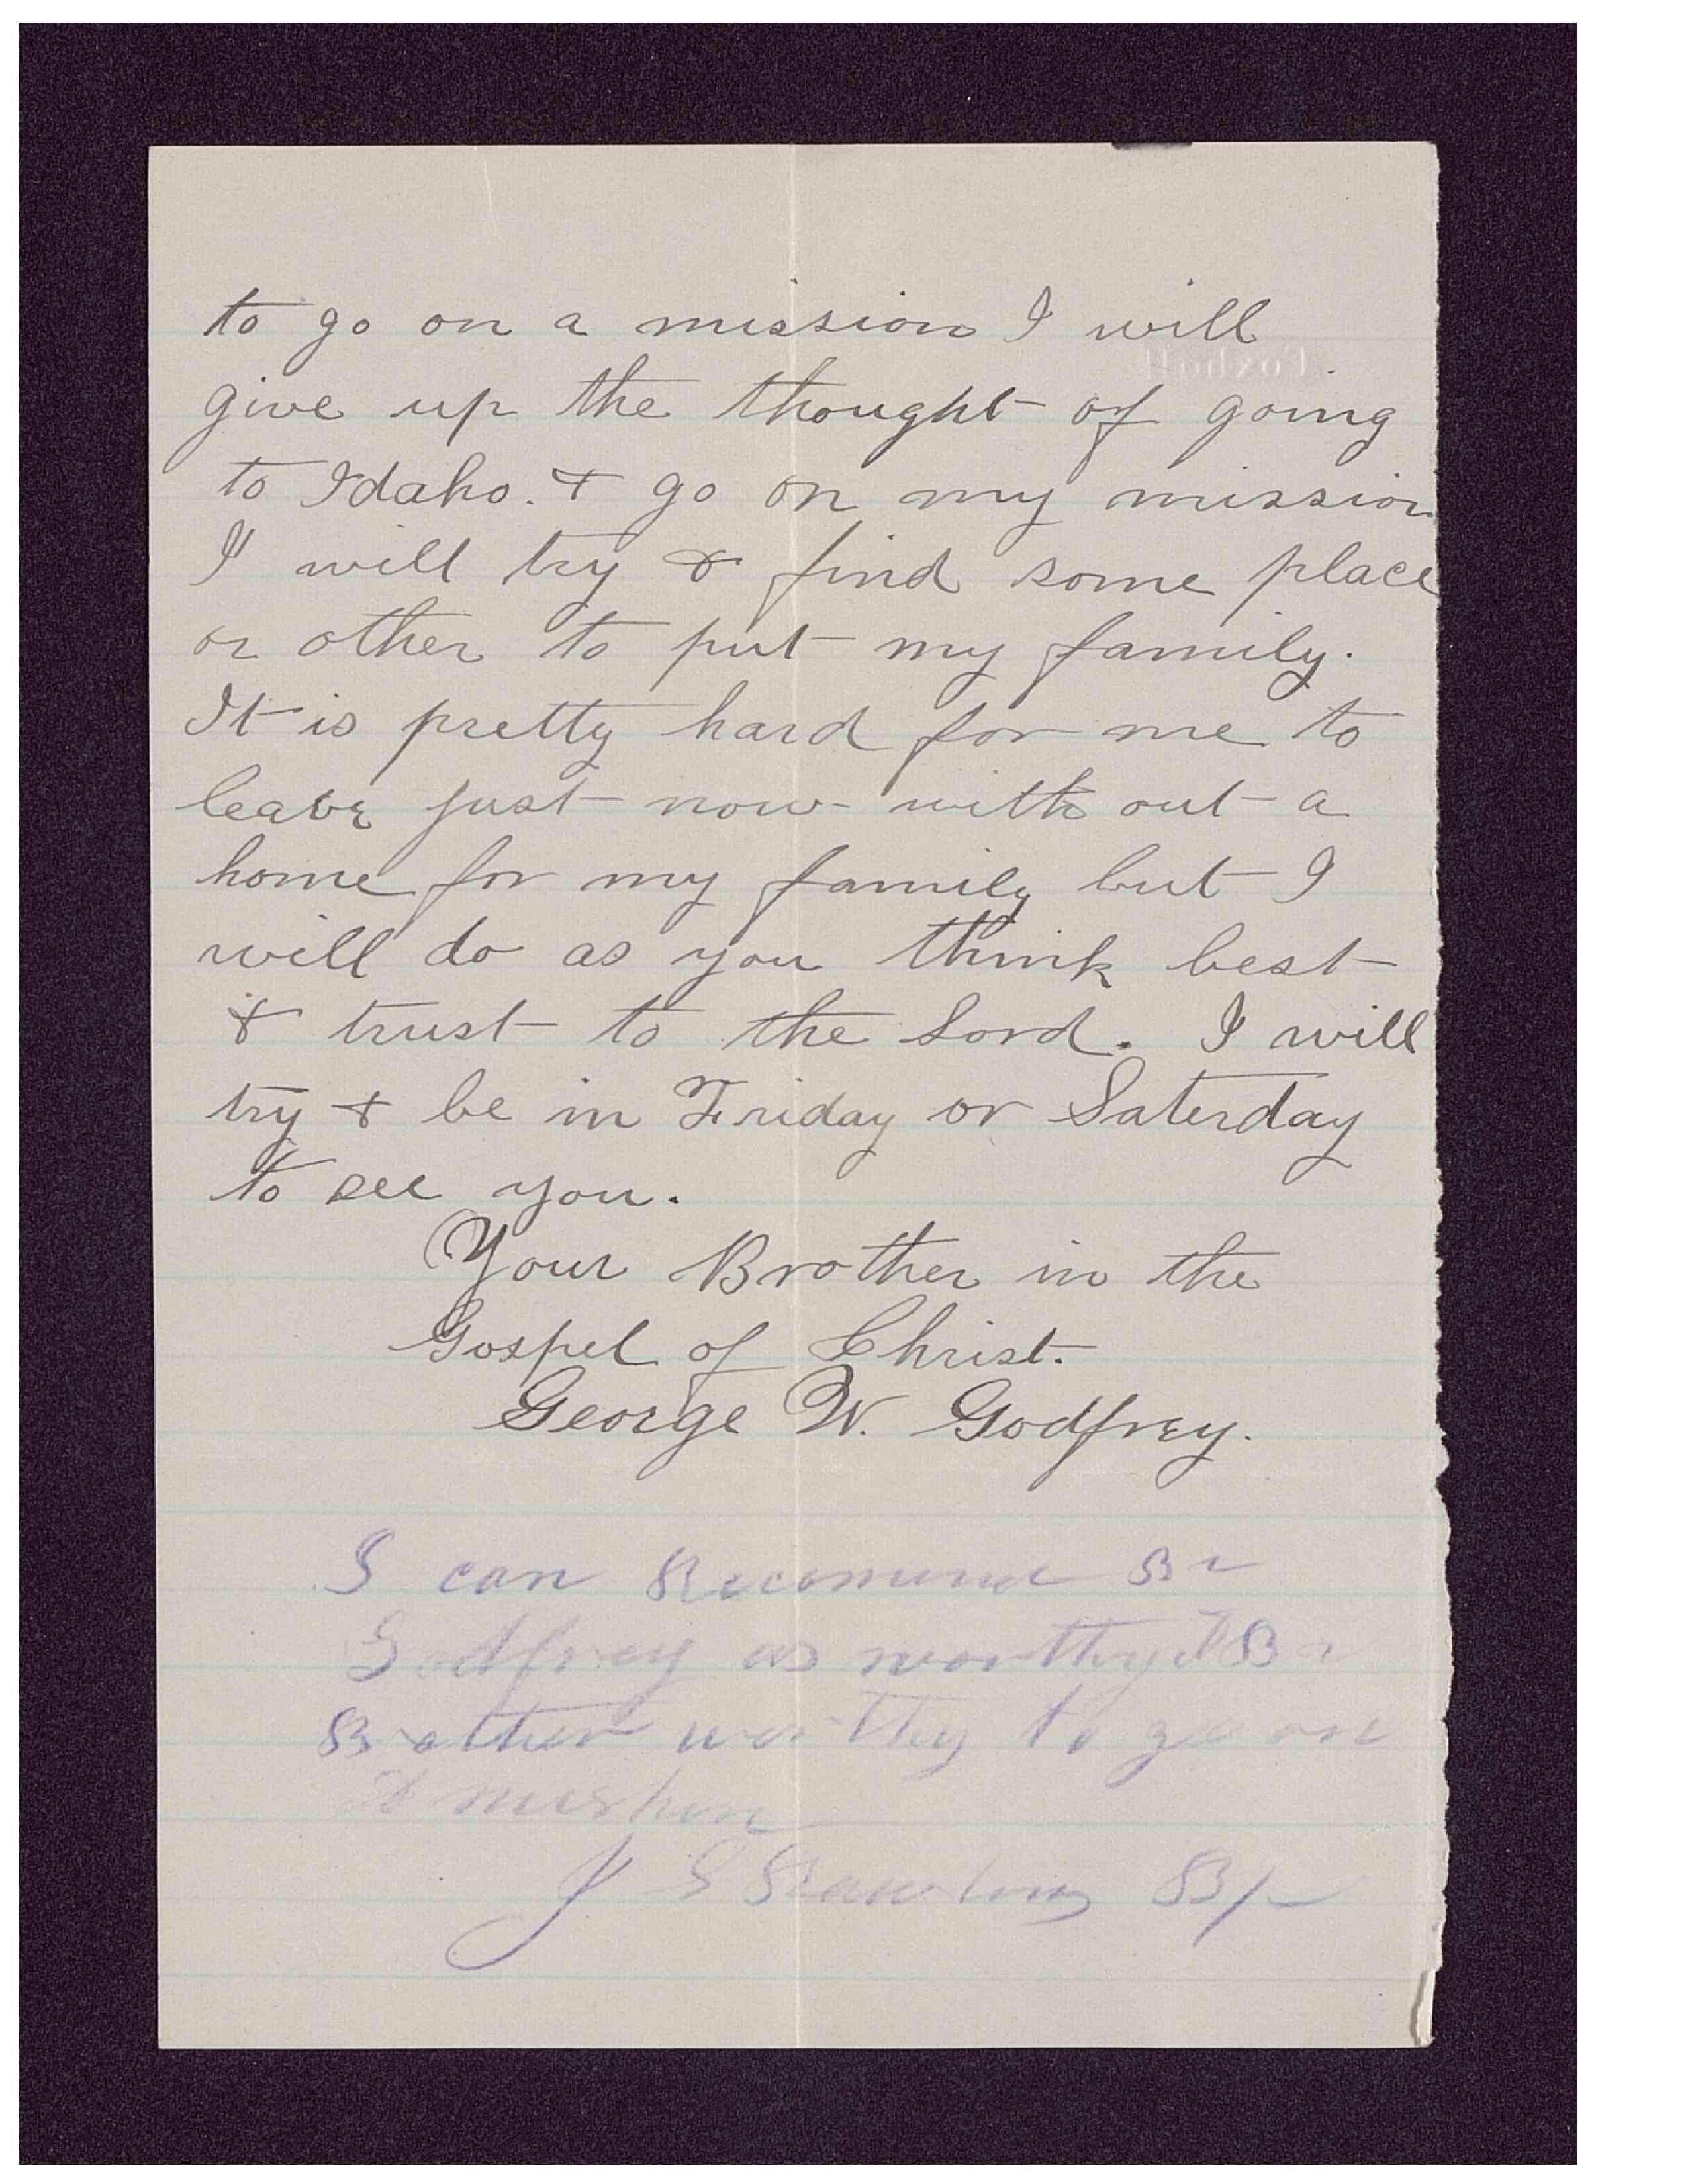 to go on a mission I will
give up the thought of going
to Idaho. & go on my mission
I will try & find some place
or other to put my family.
It is pretty hard for me to
leave just now with out a
home for my family but I
will do as you think best
& trust to the Lord. I will
try & be in Friday or Saterday
to see you.
Your Brother in the
Gospel of Christ.
George W. Godfrey.
I can Recomend Br
Godfrey as worthy
Brother worthy to go on
A mishon
J S Rawlins Bp